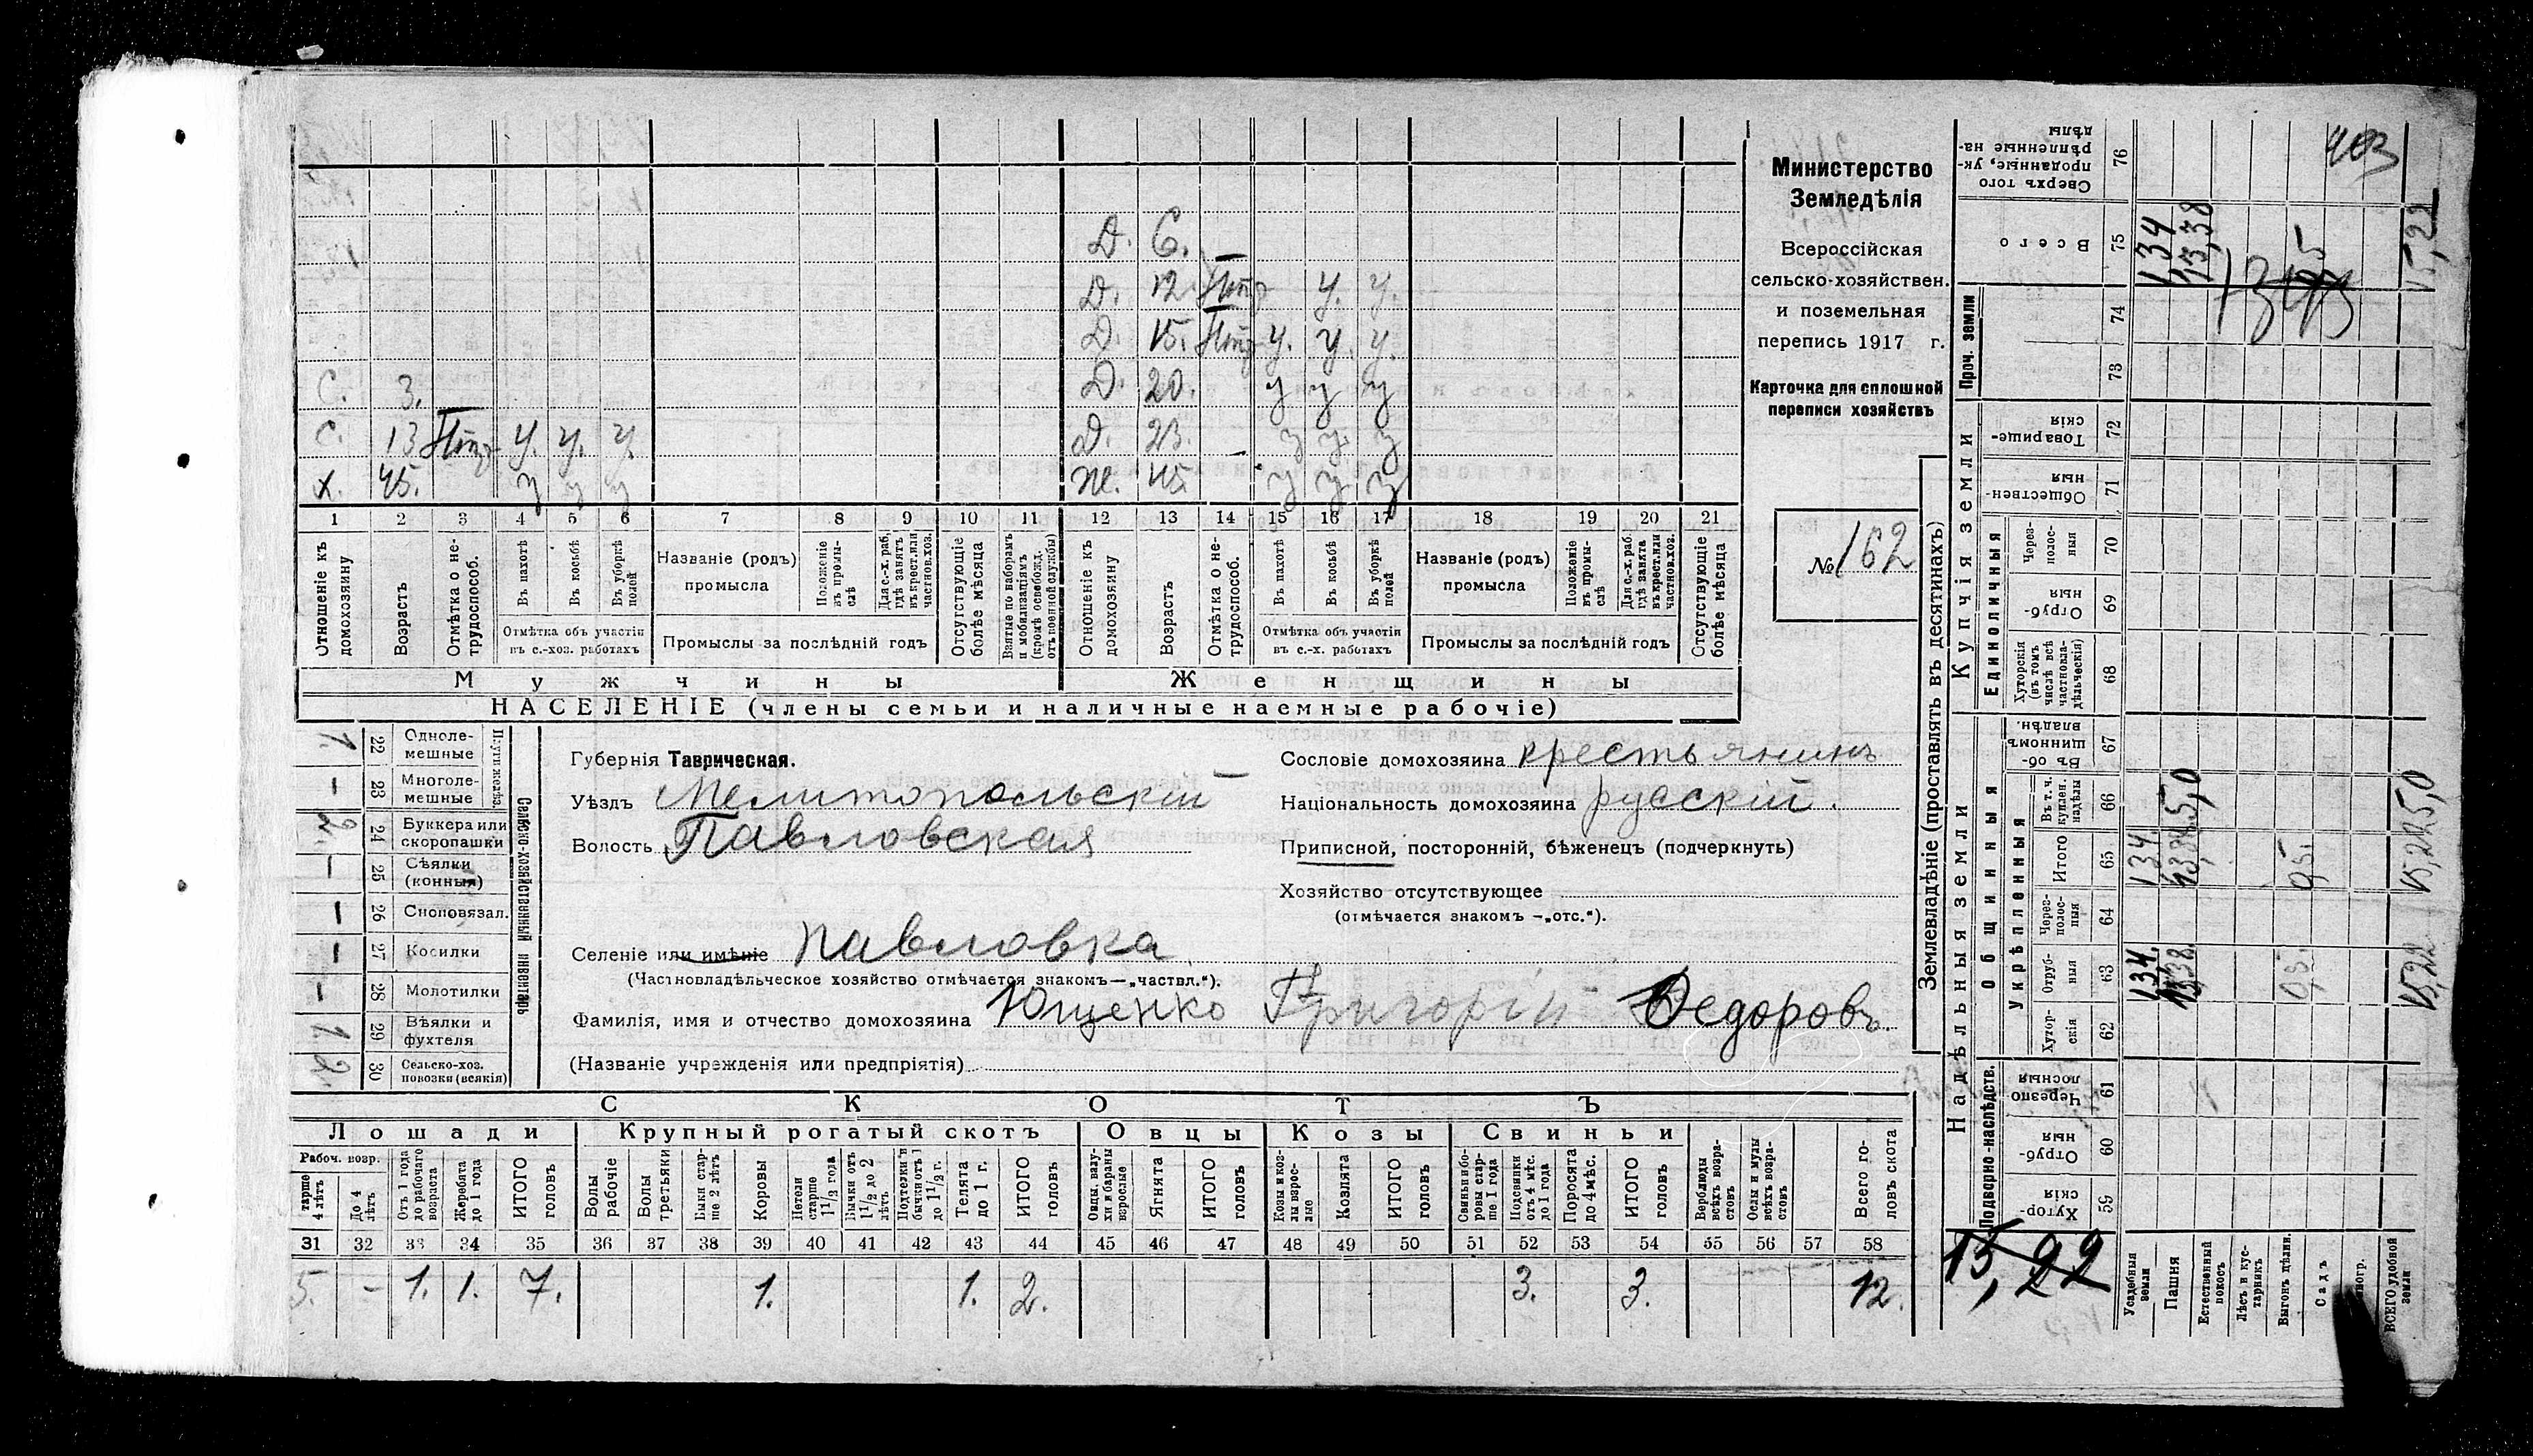 403
С. 3.
С. 13 Нтр У. У. У.
х. 45. у у у
Д. 6.
Д. 12 Нтр У. У.
Д. 15. Нтр У. У. У.
Д. 20. у у у
Д. 23. – у у у
Ж. 45 у у у
1 2 3 4 5 6 7 8 9 10 11 12 13 14 15 16 17 18 19 20 21
Отношеніе къ домохозяину
Возрастъ
Отмѣтка о не-трудоспособ.
Въ пахотѣ
Въ косьбѣ
Въ уборкѣ полей
Отмѣтка объ участіи въ с.-хоз. работахъ
Названіе (родъ) промысла
Положеніе въ промы-слѣ
Для с.-х. раб. гдѣ занятъ въ крест. или частнов. хоз.
Промыслы за послѣдній годъ
Отсутствующіе болѣе мѣсяца
Взятые по наборамъ и мобилизаціямъ (кромѣ освобожд. отъ военной службы)
Отношеніе къ домохозяину
Возрастъ
Отмѣтка о не-трудоспособ.
Въ пахотѣ
Въ косьбѣ
Въ уборкѣ полей
Отмѣтка объ участіи въ с.-х. работахъ
Названіе (родъ) промысла
Положеніе въ промы-слѣ
Для с.-х. раб. гдѣ занята въ крест. или частнов. хоз.
Промыслы за послѣдній годъ
Отсутствующіе болѣе мѣсяца
Мужчины
Женщины
НАСЕЛЕНІЕ (члены семьи и наличные наемные рабочіе)
Министерство
Земледѣлія
Всероссійская
сельско-хозяйствен.
и поземельная
перепись 1917 г.
Карточка для сплошной
переписи хозяйствъ
№ 162
Сельско-хозяйственный инвентарь
1. 22 Одноле-мешные
– 23 Многоле-мешные
2. 24 Буккера или скоропашки
– 25 Сѣялки (конныя)
– 26 Сноповязал.
– 27 Косилки
– 28 Молотилки
1. 29 Вѣялки и фухтеля
2. 30 Сельско-хоз. повозки (всякія)
Губернія Таврическая.
Уѣздъ Мелитопольскій
Волость Павловская
Селеніе или имѣніе Павловка
(Частновладѣльческое хозяйство отмѣчается знакомъ—„частвл.“).
Фамилія, имя и отчество домохозяина Ющенко Григорій Федоровъ.
(Названіе учрежденія или предпріятія)
Сословіе домохозяина крестьянинъ
Національность домохозяина русскій.
Приписной, посторонній, бѣженецъ (подчеркнуть)
Хозяйство отсутствующее
(отмѣчается знакомъ —„отс.“).
СКОТЪ
Лошади Крупный рогатый скотъ Овцы Козы Свиньи
Рабоч. возр.
старше 4 лѣтъ
До 4 лѣтъ
Отъ 1 года до рабочаго возраста
Жеребята до 1 года
ИТОГО головъ
Волы рабочіе
Волы третьяки
Быки стар-ше 2 лѣтъ
Коровы
Нетели старше 1½ года
Бычки отъ 1½ до 2 лѣтъ
Подтелки и бычки отъ 1 до 1½ г.
Телята до 1 г.
ИТОГО головъ
Овцы, валу-хи и бараны взрослые
Ягнята
ИТОГО головъ
Козы и коз-лы взрос-лые
Козлята
ИТОГО головъ
Свиньи и бо-ровы стар-ше 1 года
Подсвинки отъ 4 мѣс. до 1 года
Поросята до 4 мѣс.
ИТОГО головъ
Верблюды всѣхъ возра-стовъ
Ослы и мулы всѣхъ возра-стовъ
Всего го-ловъ скота
31 32 33 34 35 36 37 38 39 40 41 42 43 44 45 46 47 48 49 50 51 52 53 54 55 56 57 58
5. – 1. 1. 7. 1. 1. 2. 3. 3. 12.
Землевладѣніе (проставлять въ десятинахъ)
Надѣльныя земли
Купчія земли
Проч. земли
Подворно-наслѣдств.
Общинныя
Укрѣпленныя
Единоличныя
Сверхъ того проданные, ук-рѣпленные на-дѣлы 76
Всего 75 134 13,38 15,22
74
73
Товарище-скія 72
Обществен-ныя 71
Через-полос-ныя 70
Отруб-ныя 69
Хуторскія (въ томъ числѣ всѣ частновла-дѣльческія) 68
Въ об-щинномъ владѣн. 67
Въ т. ч. куплен. надѣлы 66 5,0
Итого 65 134. 13,38 15,22
Через-полос-ныя 64
Отруб-ныя 63 134. 13,38. 15,22
Хутор-скія 62
Черезпо лосныя 61
Отруб-ныя 60
Хутор-скія 59
15,22
Усадебныя земли
Пашня
Естественный покосъ
Лѣсъ и кус-тарникъ
Выгонъ дѣлим.
Садъ
ВСЕГО удобной земли